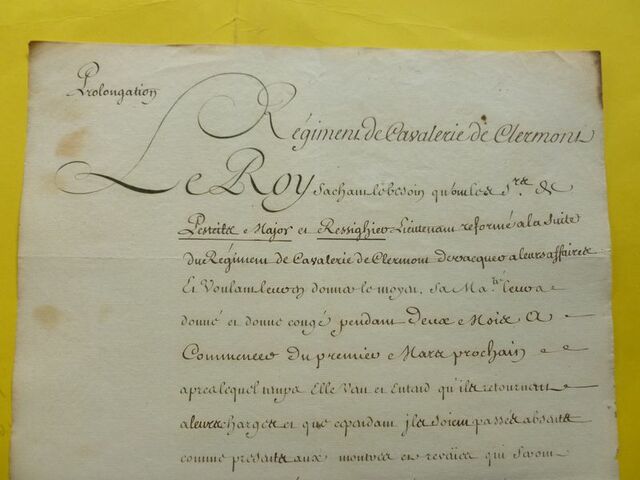 Prolongation
Régiment de Cavalerie de Clermont
Le Roy Sachant le besoin qu'ont les S.rs de
Major et Ressighier Lieutenant reformé a la Suite
du Régiment de Cavalerie de Clermont de vacquer a leurs affaires
Et Voulant leur en donner le moyen, Sa Ma.té leur a
donné et donne congé pendant Deux Mois A
Commencer du premier Mars prochain
apres lequel temps Elle Veut et Entend qu'ils retournent
a leurs charges et que cependant jls soient passés absents
comme presents aux montres et reveües qui seront